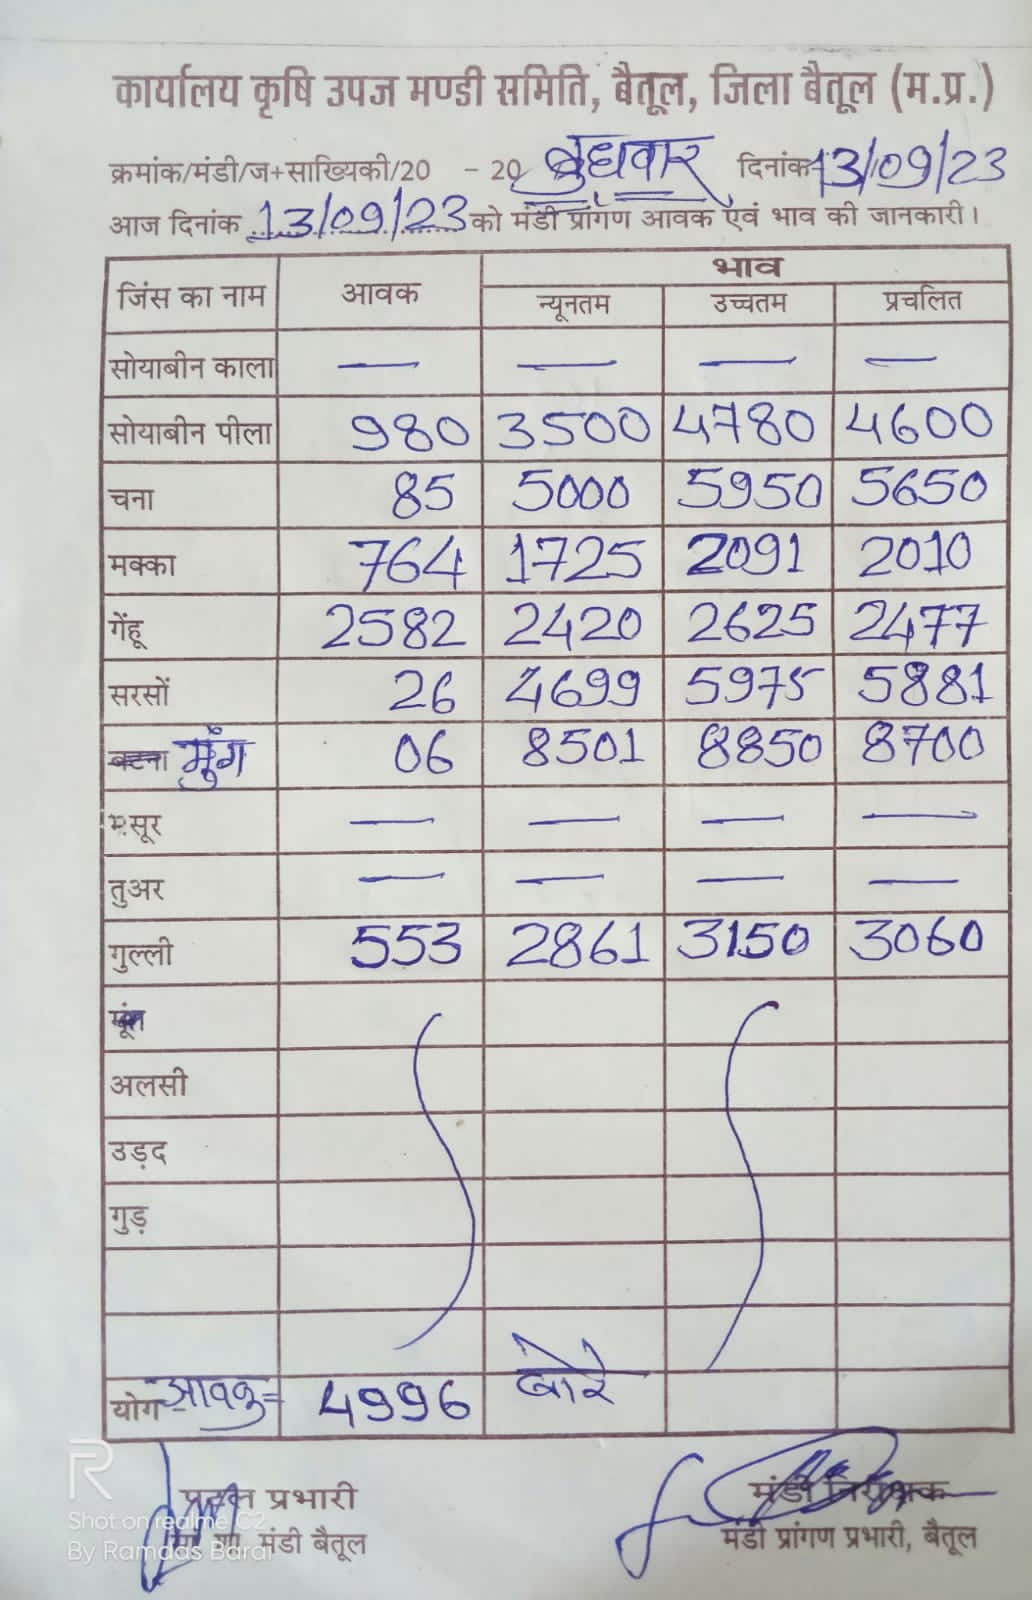 कार्यालय कृषि उपज मण्डी समिति, बैतूल, जिला बैतूल (म.प्र.)
क्रमांक/मंडी/ज+साख्यिकी/20 - 20 बुधवार दिनांक 13/09/23
आज दिनांक 13/09/23 को मंडी प्रांगण आवक एवं भाव की जानकारी।
जिंस का नाम आवक भाव
न्यूनतम उच्चतम प्रचलित
सोयाबीन काला — — — —
सोयाबीन पीला 980 3500 4780 4600
चना 85 5000 5950 5650
मक्का 764 1725 2091 2010
गेंहू 2582 2420 2625 2477
सरसों 26 4699 5975 5881
बटना मुंग 06 8501 8850 8700
मसूर — — — —
तुअर — — — —
गुल्ली 553 2861 3150 3060
अलसी
उड़द
गुड़
योग आवक = 4996 बोरे
प्रभारी मंडी
मंडी बैतूल मंडी प्रांगण प्रभारी, बैतूल
R
Shot on realme C2
By Ramdas Barai